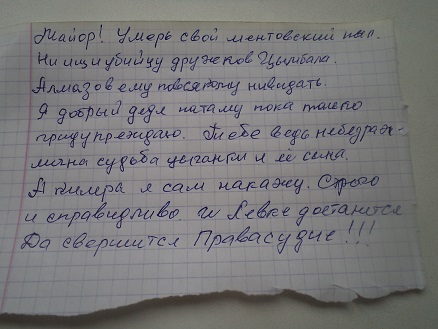 Майор! Уморь свой ментовский пыл.
Ни ищи убийцу дружков Цымбала.
Алмазов ему повсякому нивидать.
Я добрый дедя патаму пока токо
придупреждаю. Тебе ведь небезраз-
лична судьба цыганки и её сына.
А килира я сам накажу. Строго
и справидливо и Левке достанится
Да свершится Правасудие!!!